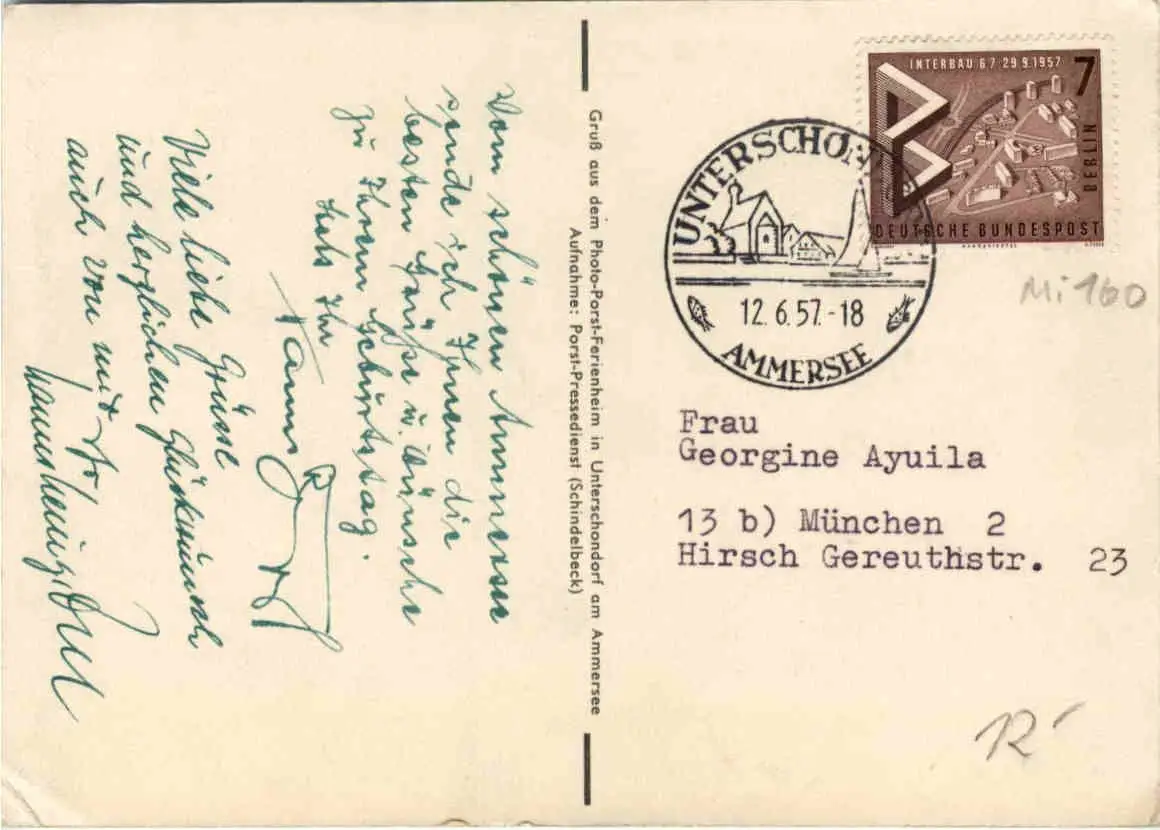 Vom schönen Ammersee
sende ich Ihnen die
besten Grüße u. Wünsche
zu Ihrem Geburtstag.
Stets Ihr
Viele liebe Grüsse
und herzlichen Glückwunsch
auch von mir
Gruß aus dem Photo-Porst-Ferienheim in Unterschondorf am Ammersee
Aufnahme: Porst-Pressedienst (Schindelbeck)
INTERBAU 6.7-29.9.1957 7
BERLIN
DEUTSCHE BUNDESPOST
UNTERSCHONDORF
12.6.57.-18
AMMERSEE
Mi 160
Frau
Georgine Ayuila
13 b) München 2
Hirsch Gereuthstr. 23
12.-